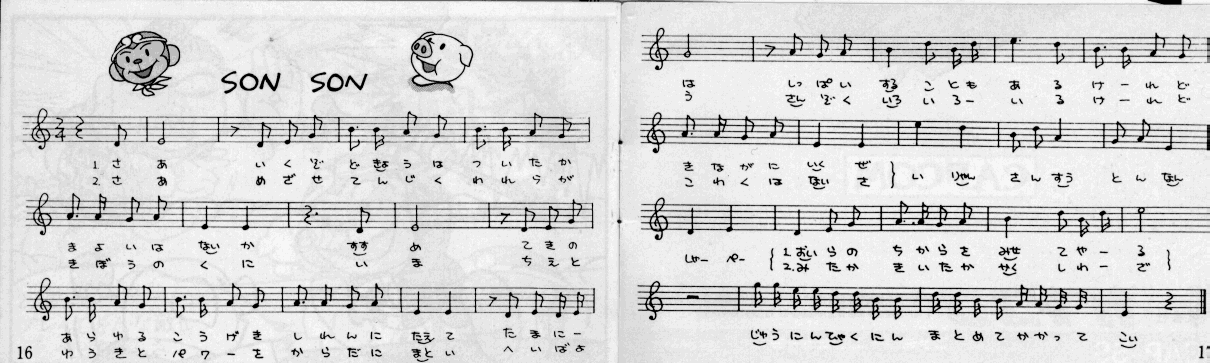 SON SON
1.さ あ いくぞ ときょうは ついたか
2.さ あ めざせ てんじく われらが
まよいは ないか すす め てきの
きぼうの くに い ま ちえと
あらゆる こうげき しれんに たえて たまにー
ゆうきと パワーを からだに まとい へいばよ
16
は しっぱい する こともあるけーれど
う さんぞく いろ いろーいるけーれど
きながに いく ぜ
こわくは ない さ
い りゃん さんすう とんなん
しゃーペー
1.おいらの ちからを みせてやーる
2.みたか きいたか せくしわーざ
じゅうにんひゃくにん まとめてかかって こい
17